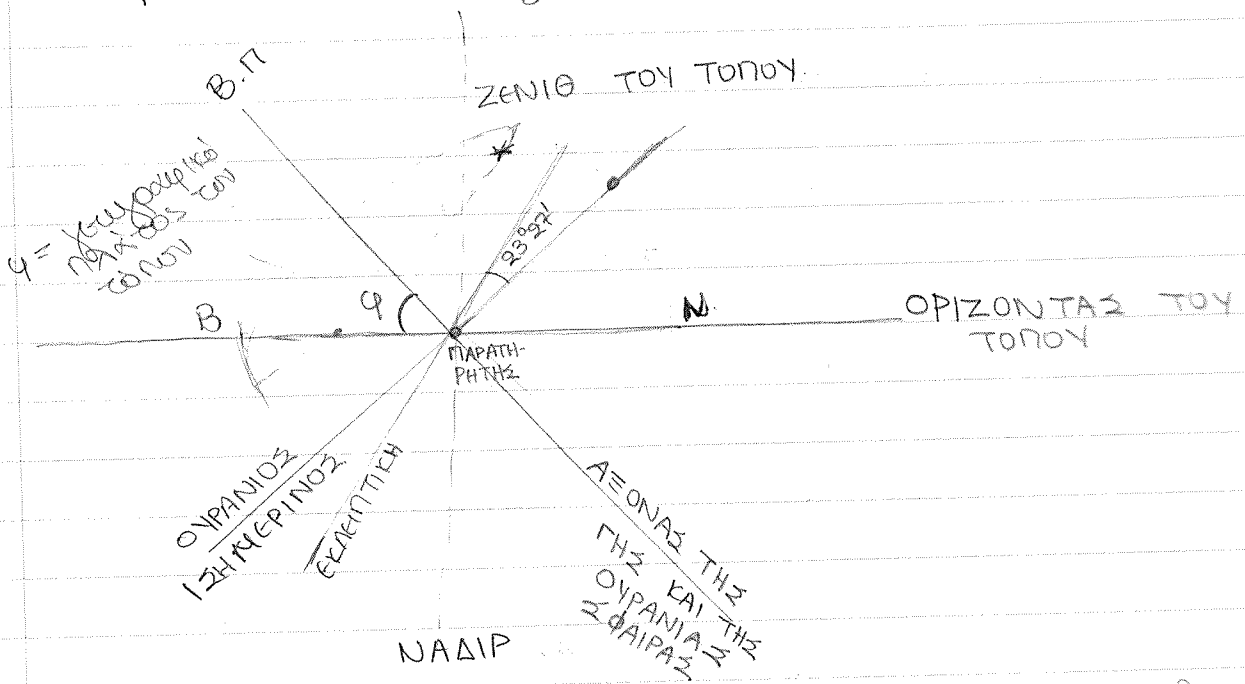 Β.Π
ΖΕΝΙΘ ΤΟΥ ΤΟΠΟΥ.
φ = γεωγραφικό
πλάτος του
τόπου
23°27'
φ
Β
Ν
ΟΡΙΖΟΝΤΑΣ ΤΟΥ
ΤΟΠΟΥ
ΠΑΡΑΤΗ-
ΡΗΤΗΣ
ΟΥΡΑΝΙΟΣ
ΙΣΗΜΕΡΙΝΟΣ
ΕΚΛΕΙΠΤΙΚΗ
ΑΞΟΝΑΣ ΤΗΣ
ΓΗΣ ΚΑΙ ΤΗΣ
ΟΥΡΑΝΙΑΣ
ΣΦΑΙΡΑΣ
ΝΑΔΙΡ